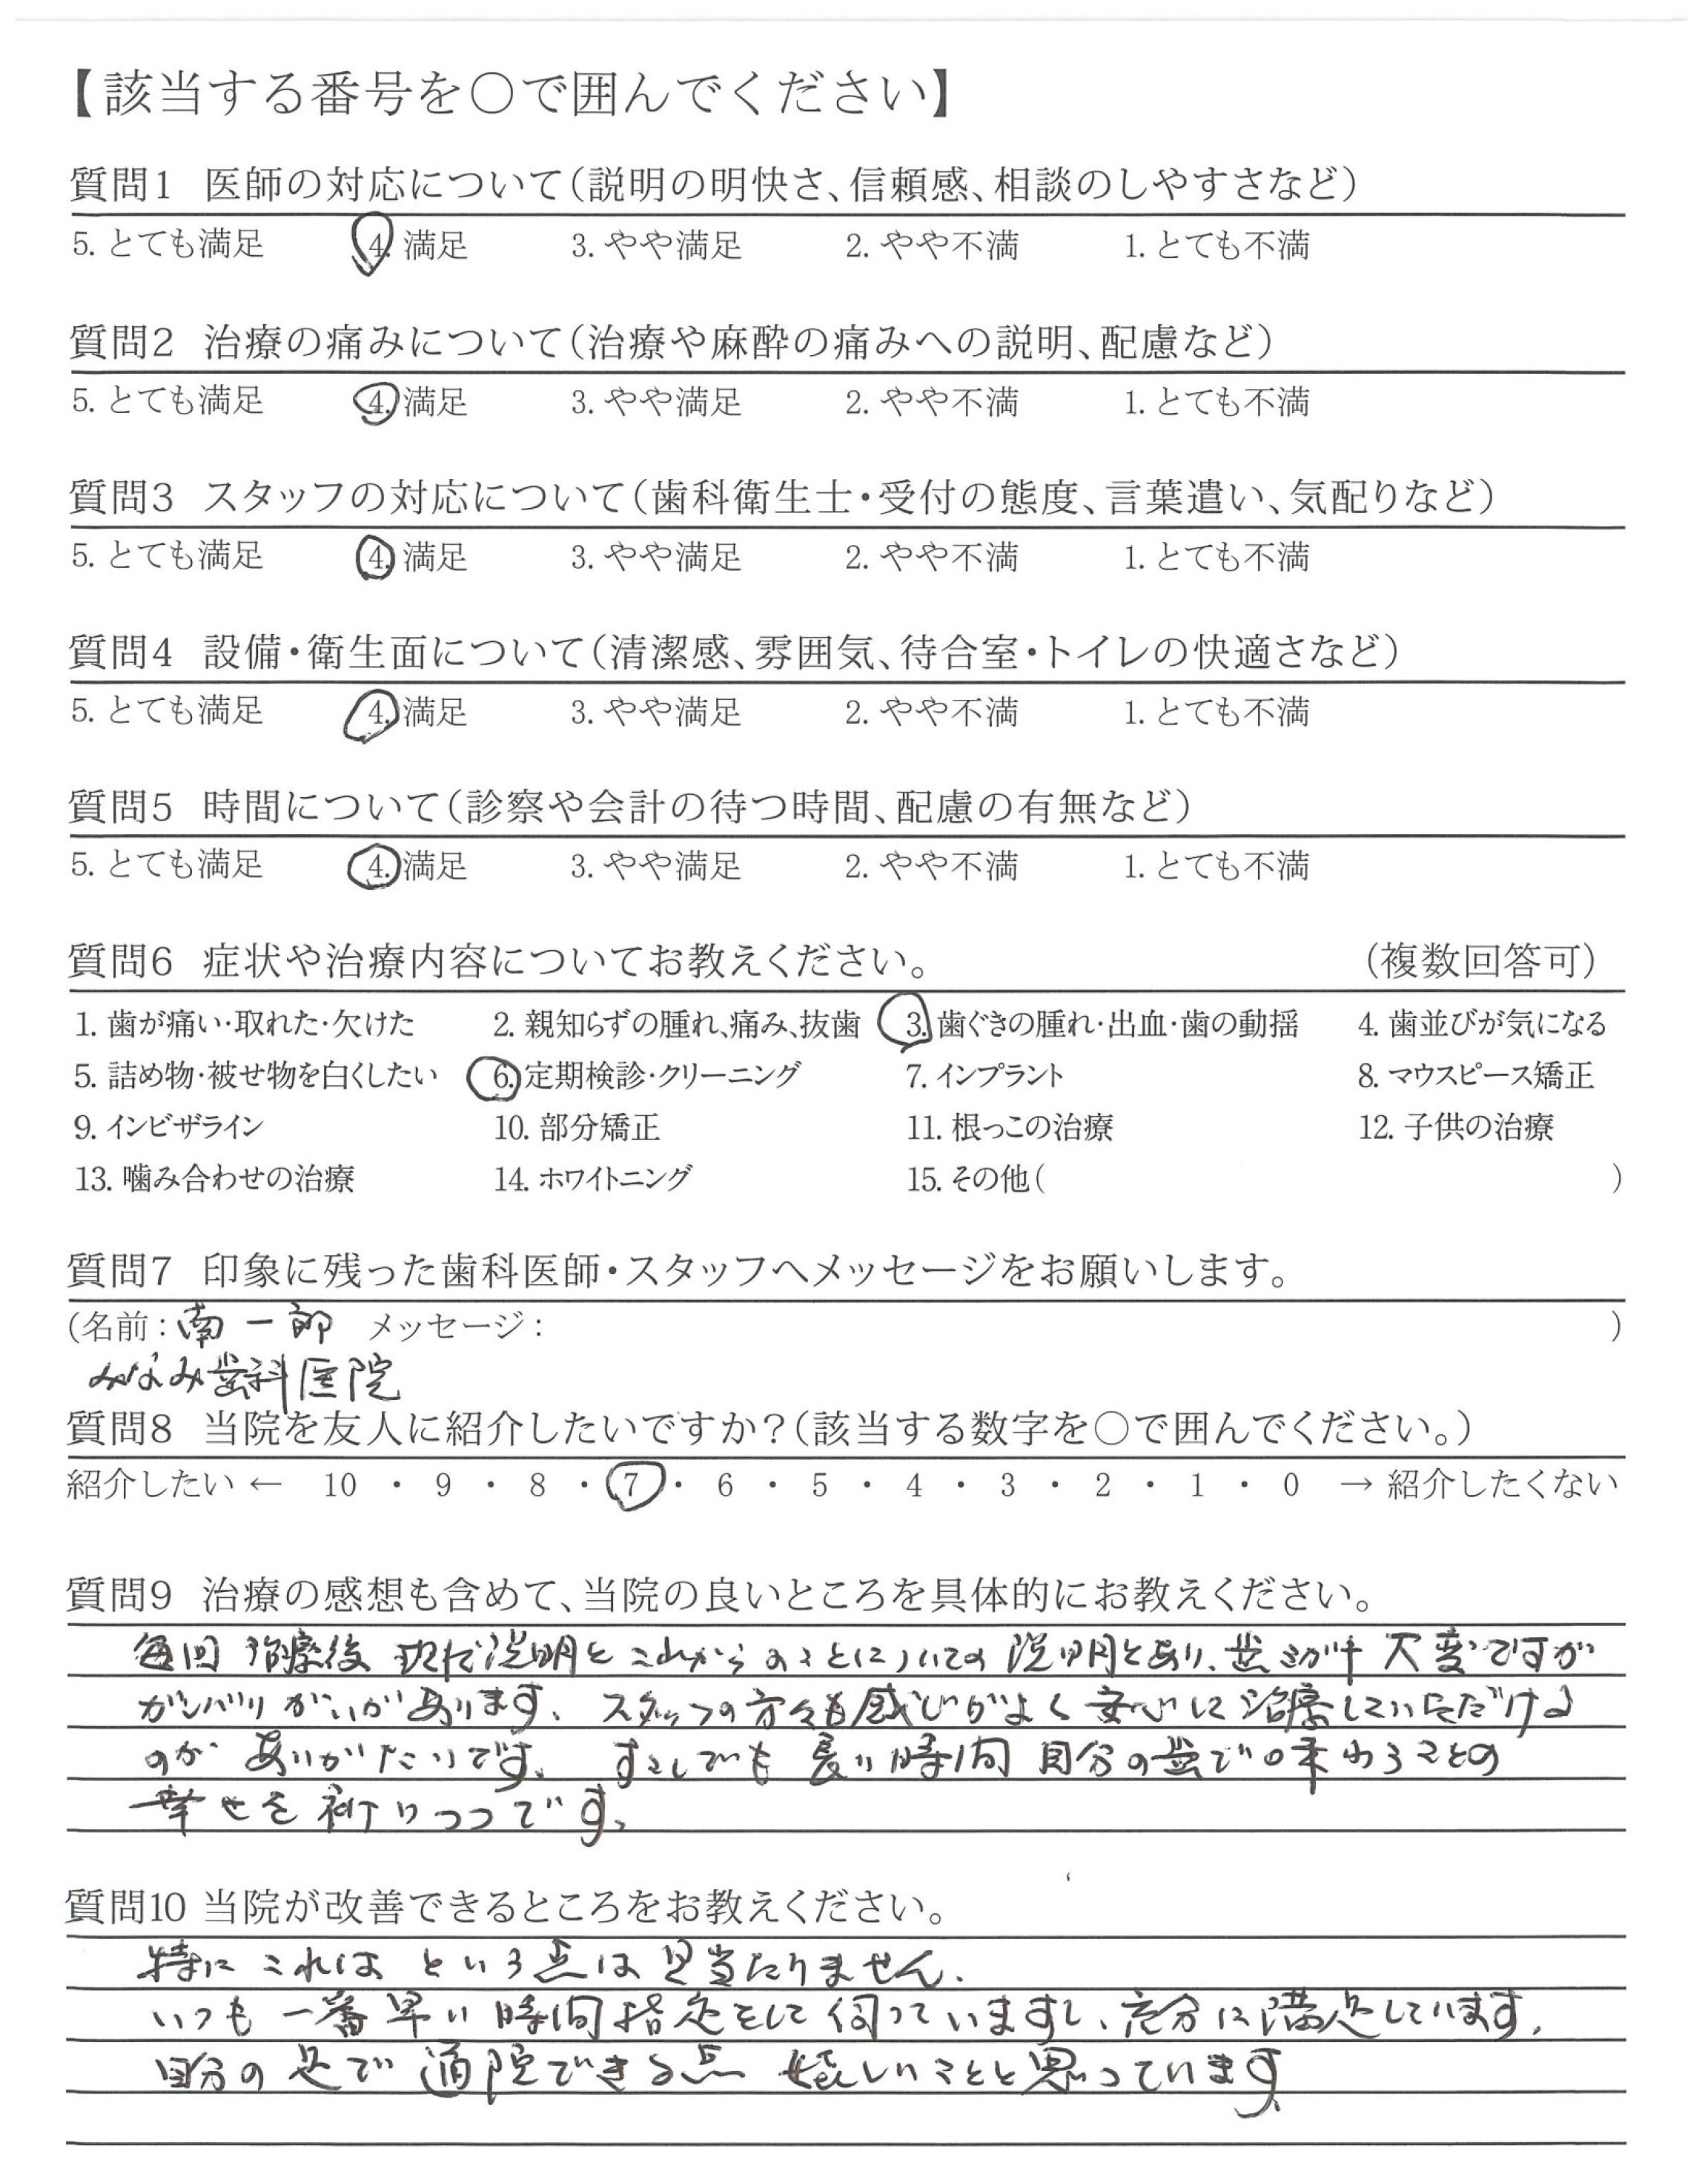 【該当する番号を○で囲んでください】
質問1 医師の対応について（説明の明快さ、信頼感、相談のしやすさなど）
5. とても満足 4. 満足 3. やや満足 2. やや不満 1. とても不満
質問2 治療の痛みについて（治療や麻酔の痛みへの説明、配慮など）
5. とても満足 4. 満足 3. やや満足 2. やや不満 1. とても不満
質問3 スタッフの対応について（歯科衛生士・受付の態度、言葉遣い、気配りなど）
5. とても満足 4. 満足 3. やや満足 2. やや不満 1. とても不満
質問4 設備・衛生面について（清潔感、雰囲気、待合室・トイレの快適さなど）
5. とても満足 4. 満足 3. やや満足 2. やや不満 1. とても不満
質問5 時間について（診察や会計の待つ時間、配慮の有無など）
5. とても満足 4. 満足 3. やや満足 2. やや不満 1. とても不満
質問6 症状や治療内容についてお教えください。 （複数回答可）
1. 歯が痛い・取れた・欠けた 2. 親知らずの腫れ、痛み、抜歯 3. 歯ぐきの腫れ・出血・歯の動揺 4. 歯並びが気になる
5. 詰め物・被せ物を白くしたい 6. 定期検診・クリーニング 7. インプラント 8. マウスピース矯正
9. インビザライン 10. 部分矯正 11. 根っこの治療 12. 子供の治療
13. 噛み合わせの治療 14. ホワイトニング 15. その他（ ）
質問7 印象に残った歯科医師・スタッフへメッセージをお願いします。
（名前：南一郎 メッセージ： ）
みなみ歯科医院
質問8 当院を友人に紹介したいですか？（該当する数字を○で囲んでください。）
紹介したい ← 10 ・ 9 ・ 8 ・ 7 ・ 6 ・ 5 ・ 4 ・ 3 ・ 2 ・ 1 ・ 0 → 紹介したくない
質問9 治療の感想も含めて、当院の良いところを具体的にお教えください。
毎回 治療後 説明と これからのことについての説明とあり、歯ミガキ大変ですが
ガンバリがいがあります。スタッフの方々も感じがよく安心に治療していただける
のがありがたいです。すこしでも長い時間 自分の歯で味わうことの
幸せを祈りつつです。
質問10 当院が改善できるところをお教えください。
特に これは という点は 見当たりません。
いつも 一番早い時間指定をして伺っていますし、充分に満足しています。
自分の足で通院できる点 嬉しいことと思っています。